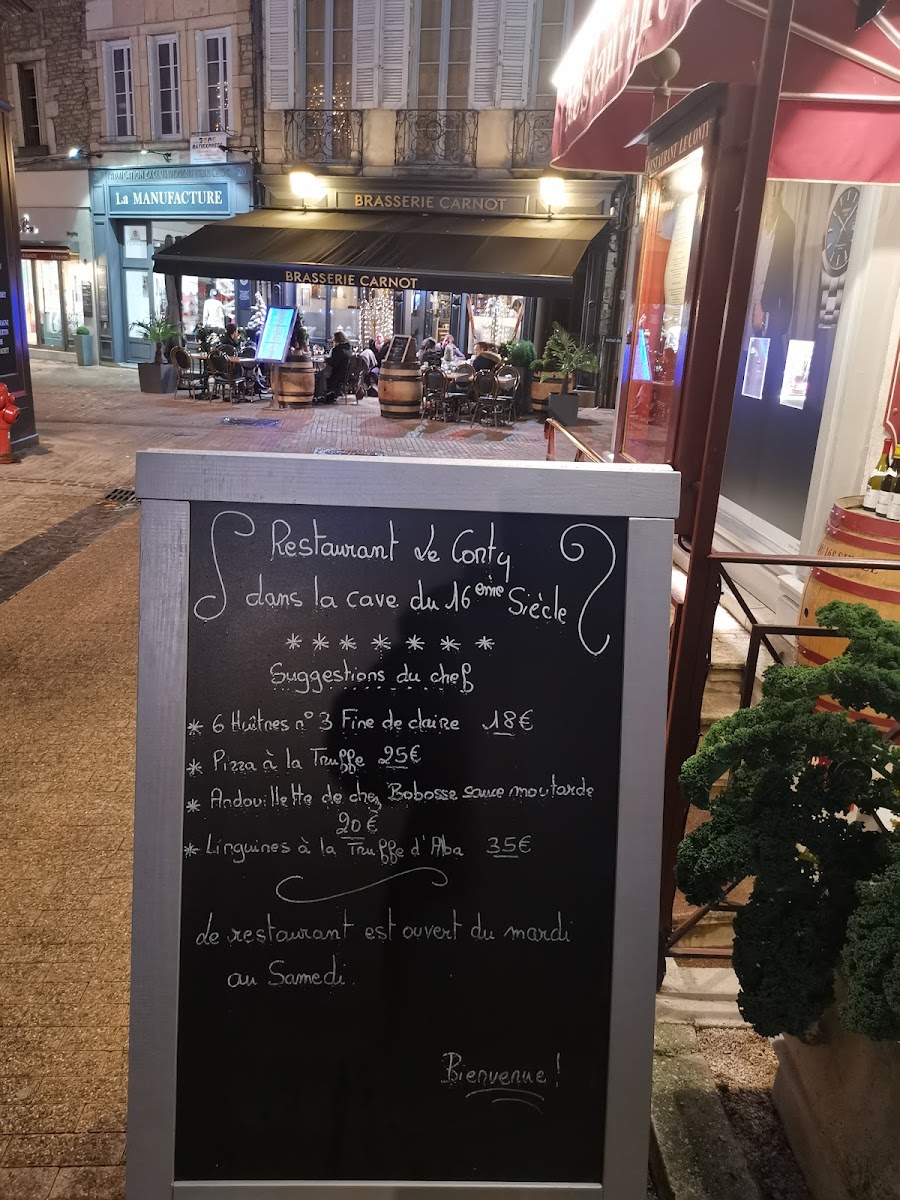 La MANUFACTURE
BRASSERIE CARNOT
BRASSERIE CARNOT
RESTAURANT LE CONTY
Restaurant Le Conty
dans la cave du 16ème Siècle
* * * * * * *
Suggestions du chef
* 6 Huîtres n° 3 Fine de claire 18€
* Pizza à la Truffe 25€
* Andouillette de chez Bobosse sauce moutarde
20€
* Linguines à la Truffe d'Alba 35€
Le restaurant est ouvert du mardi
au Samedi.
Bienvenue !